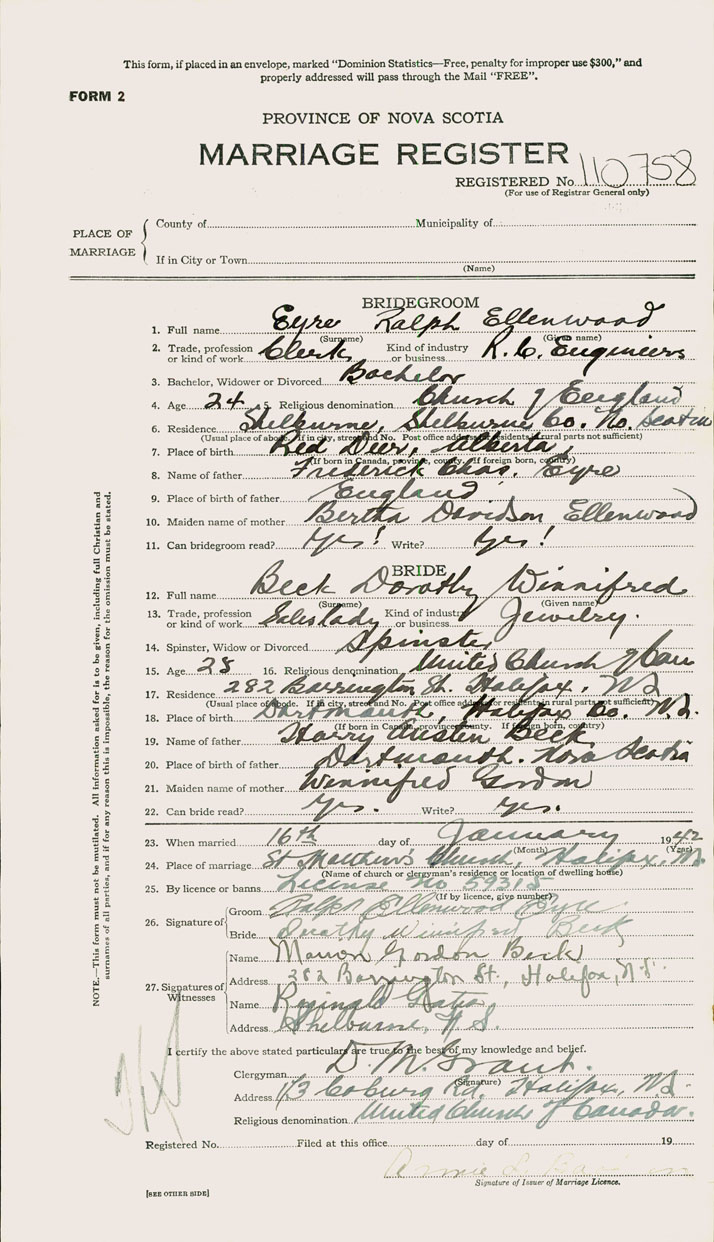 This form, if placed in an envelope, marked "Dominion Statistics—Free, penalty for improper use $300," and
properly addressed will pass through the Mail "FREE".
FORM 2
PROVINCE OF NOVA SCOTIA
MARRIAGE REGISTER
REGISTERED No. 110758
(For use of Registrar General only)
PLACE OF MARRIAGE
County of Municipality of
If in City or Town
(Name)
BRIDEGROOM
1. Full name Eyre Ralph Ellenwood
(Surname) (Given name)
2. Trade, profession or kind of work Clerk Kind of industry or business R. C. Engineers
3. Bachelor, Widower or Divorced Bachelor
4. Age 24 5. Religious denomination Church of England
6. Residence Shelburne, Shelburne Co. No. Scotia
(Usual place of abode. If in city, street and No. Post office address for residents in rural parts not sufficient)
7. Place of birth Red Deer, Alberta
(If born in Canada, province, county. If foreign born, country)
8. Name of father Frederick Chas. Eyre
9. Place of birth of father England
10. Maiden name of mother Bertha Davidson Ellenwood
11. Can bridegroom read? Yes! Write? Yes!
BRIDE
12. Full name Beck Dorothy Winnifred
(Surname) (Given name)
13. Trade, profession or kind of work Saleslady Kind of industry or business Jewelry.
14. Spinster, Widow or Divorced Spinster
15. Age 28 16. Religious denomination United Church of Can
17. Residence 282 Barrington St. Halifax, N.S.
(Usual place of abode. If in city, street and No. Post office address for residents in rural parts not sufficient)
18. Place of birth Dartmouth, Halifax Co. N.S.
(If born in Canada, province, county. If foreign born, country)
19. Name of father Harry Austen Beck
20. Place of birth of father Dartmouth. Nova Scotia
21. Maiden name of mother Winnifred Gordon
22. Can bride read? Yes. Write? Yes.
23. When married 16th day of January 1942
(Month) (Year)
24. Place of marriage St Matthew's Church, Halifax, N.S.
(Name of church or clergyman's residence or location of dwelling house)
25. By licence or banns License No 59315
(If by licence, give number)
26. Signature of
Groom Ralph Ellenwood Eyre
Bride Dorothy Winnifred Beck
27. Signatures of Witnesses
Name Marion Gordon Beck
Address 282 Barrington St., Halifax, N.S.
Name Reginald
Address Shelburne, N.S.
I certify the above stated particulars are true to the best of my knowledge and belief.
Clergyman D. M. Grant.
(Signature)
Address 113 Coburg Rd. Halifax, N.S.
Religious denomination United Church of Canada.
Registered No. Filed at this office day of 19
Annie L.
Signature of Issuer of Marriage Licence.
[SEE OTHER SIDE]
NOTE.—This form must not be mutilated. All information asked for is to be given, including full Christian and
surnames of all parties, and if for any reason this is impossible, the reason for the omission must be stated.